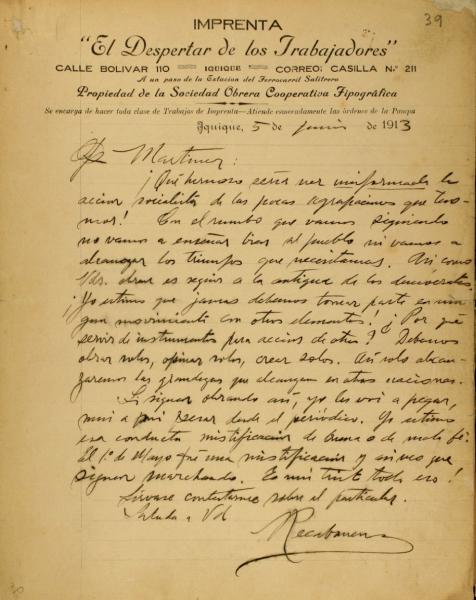 39
IMPRENTA
"El Despertar de los Trabajadores"
CALLE BOLIVAR 110 IQUIQUE CORREO: CASILLA N.o 211
A un paso de la Estacion del Ferrocarril Salitrero
Propiedad de la Sociedad Obrera Cooperativa Tipográfica
Se encarga de hacer toda clase de Trabajos de Imprenta—Atiende esmeradamente las órdenes de la Pampa
Iquique, 5 de Junio de 1913
Martinez:
¡Qué hermoso sería ver uniformada la
accion socialista de las pocas agrupaciones que tene-
mos! En el rumbo que vamos siguiendo
no vamos a enseñar bien al pueblo ni vamos a
alcanzar los triunfos que necesitamos. Asi como
Vds. obran es seguir a la antigua de los democratas.
¡Yo estimo que jamas debemos tomar parte en nin
gun movimiento con otros elementos! ¿Por qué
servir de instrumentos para accion de otros? Debemos
obrar solos, opinar solos, crear solos. Asi solo alcan-
zaremos las grandezas que alcanzan en otras naciones.
Si siguen obrando asi, yo les voi a pegar,
mui a mi pesar desde el periódico. Yo estimo
esa conducta mistificacion de buena o de mala fé.
El 1.o de Mayo fué una mistificacion y asi veo que
siguen marchando. Es mui triste todo eso!
Sirvase contestarme sobre el particular.
Saluda a Vd
Recabarren